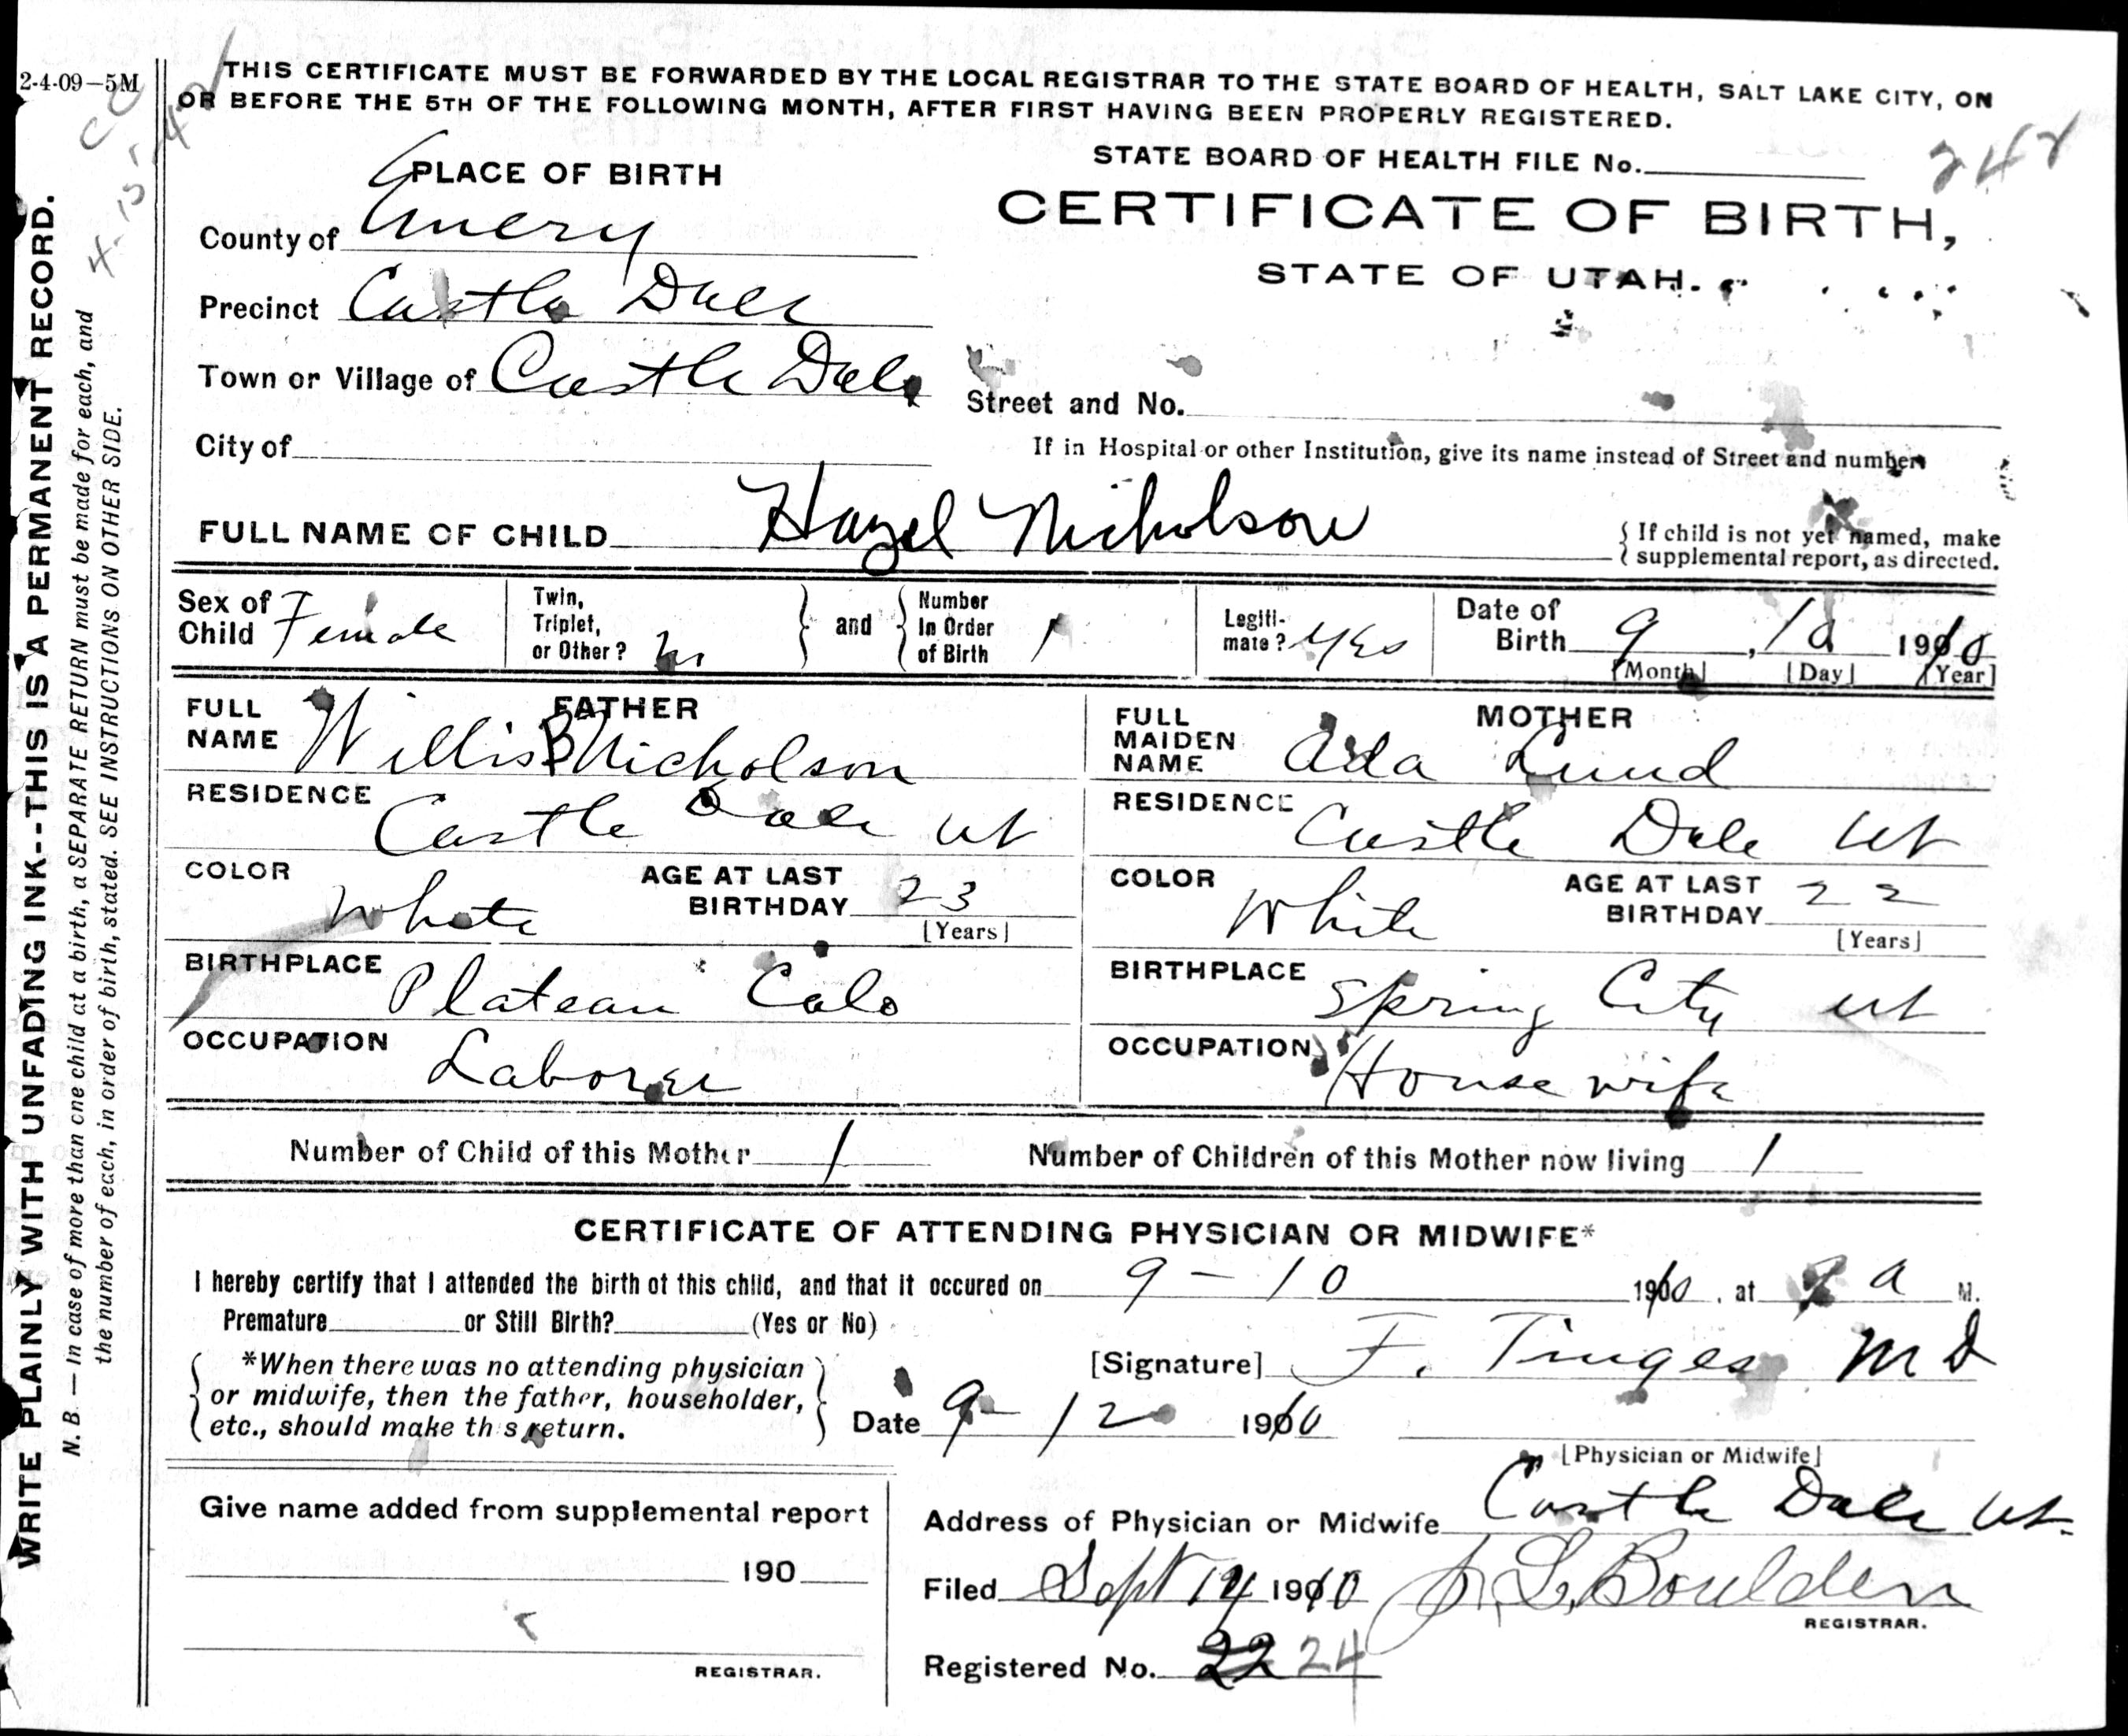 2-4-09-5M
THIS CERTIFICATE MUST BE FORWARDED BY THE LOCAL REGISTRAR TO THE STATE BOARD OF HEALTH, SALT LAKE CITY, ON
OR BEFORE THE 5TH OF THE FOLLOWING MONTH, AFTER FIRST HAVING BEEN PROPERLY REGISTERED.
PLACE OF BIRTH
STATE BOARD OF HEALTH FILE No. 242
CERTIFICATE OF BIRTH,
STATE OF UTAH.
County of Emery
Precinct Castle Dale
Town or Village of Castle Dale
Street and No.
City of
If in Hospital or other Institution, give its name instead of Street and number.
FULL NAME OF CHILD Hazel Nicholson
{ If child is not yet named, make
supplemental report, as directed.
Sex of Child Female
Twin, Triplet, or Other?
and
Number In Order of Birth 1
Legiti- mate? Yes
Date of Birth 9, 10 1910
[Month] [Day] [Year]
FATHER
FULL NAME Willis B Nicholson
RESIDENCE Castle Dale Ut
COLOR White
AGE AT LAST BIRTHDAY 23
[Years]
BIRTHPLACE Plateau Colo
OCCUPATION Laborer
MOTHER
FULL MAIDEN NAME Ada Lund
RESIDENCE Castle Dale Ut
COLOR White
AGE AT LAST BIRTHDAY 22
[Years]
BIRTHPLACE Spring City Ut
OCCUPATION House wife
Number of Child of this Mother 1
Number of Children of this Mother now living 1
CERTIFICATE OF ATTENDING PHYSICIAN OR MIDWIFE*
I hereby certify that I attended the birth of this child, and that it occured on 9-10 1910, at 9 a M.
Premature or Still Birth? (Yes or No)
*When there was no attending physician
or midwife, then the father, householder,
etc., should make this return.
[Signature] F. Tinges M D
Date 9-12 1910
[Physician or Midwife]
Give name added from supplemental report
190
REGISTRAR.
Address of Physician or Midwife Castle Dale Ut.
Filed Sept 14 1910 Boulden
REGISTRAR.
Registered No. 22 24
WRITE PLAINLY WITH UNFADING INK--THIS IS A PERMANENT RECORD.
N. B. — In case of more than one child at a birth, a SEPARATE RETURN must be made for each, and
the number of each, in order of birth, stated. SEE INSTRUCTIONS ON OTHER SIDE.